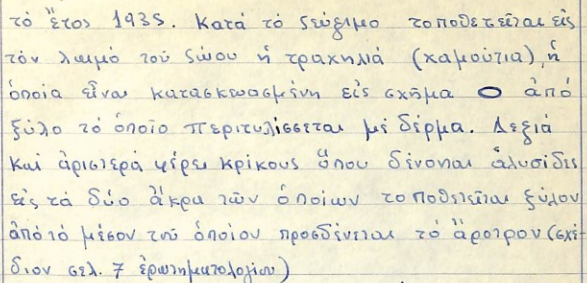 τὸ ἔτος 1935. Κατά τό ζεύξιμο τοποθετεῖται εἰς
τόν λαιμό τοῦ ζώου ἡ τραχηλιά (χαμούτια), ἡ
ὁποία εἶναι κατασκευασμένη εἰς σχῆμα ⬭ ἀπό
ξύλο τό ὁποῖο περιτυλίσσεται μέ δέρμα. Δεξιά
καί ἀριστερά φέρει κρίκους ὅπου δένονται ἁλυσίδες
εἰς τά δύο ἄκρα τῶν ὁποίων τοποθετεῖται ξύλον
ἀπό τό μέσον τοῦ ὁποίου προσδένεται τό ἄροτρον (σχέ-
διον σελ. 7 ἐρωτηματολογίου)